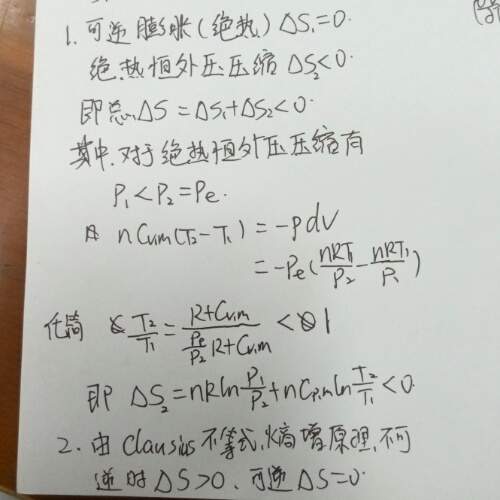 1. 可逆膨胀(绝热) ΔS₁=0.
绝热恒外压压缩 ΔS₂<0.
即总ΔS=ΔS₁+ΔS₂<0.
其中,对于绝热恒外压压缩有
P₁<P₂=Pe.
nCv,m(T₂-T₁) = -pdv
= -Pe(nRT₁/P₂ - nRT₁/P₁)
化简 T₂/T₁ = (R+Cv,m)/(Pe/P₂ R+Cv,m) < 1
即 ΔS₂=nRln P₁/P₂ + nCp,m ln T₂/T₁ <0.
2. 由Clausius不等式,熵增原理,不可
逆时ΔS>0, 可逆ΔS=0.